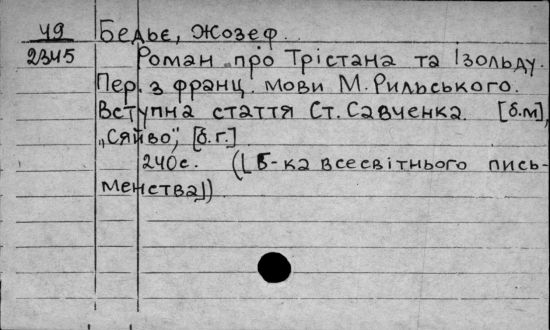 49 Бедьє, Жозеф.
2345 Роман про Трістана та Ізольду.
Пер. з франц. мови М. Рильського.
Вступна стаття Ст. Савченка. [б.м],
„Сяйво", [б.г.]
240с. ([Б-ка всесвітнього пись-
менства])